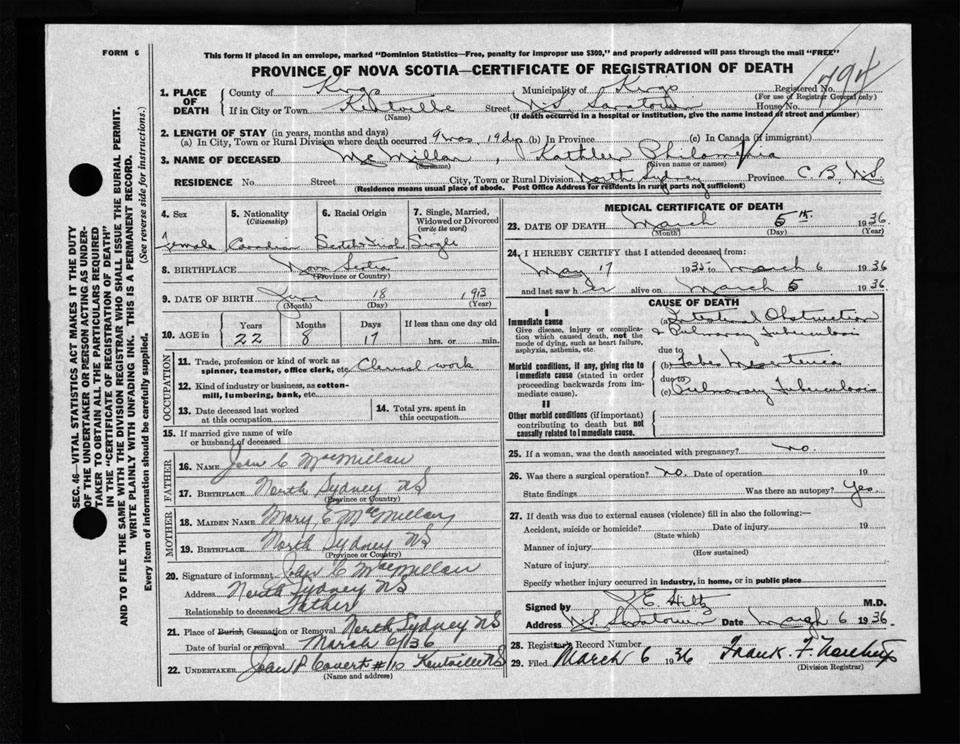 FORM 6
This form if placed in an envelope, marked "Dominion Statistics—Free, penalty for improper use $300," and properly addressed will pass through the mail "FREE"
PROVINCE OF NOVA SCOTIA—CERTIFICATE OF REGISTRATION OF DEATH
494
1. PLACE OF DEATH
County of Kings Municipality of Kings Registered No.
(For use of Registrar General only)
If in City or Town Kentville Street N.S. Sanatorium House No.
(Name) (If death occurred in a hospital or institution, give the name instead of street and number)
2. LENGTH OF STAY (in years, months and days)
(a) In City, Town or Rural Division where death occurred 9 mos, 19 dys (b) In Province (c) In Canada (if immigrant)
3. NAME OF DECEASED McMillan, Kathleen
(Given name or names)
RESIDENCE No. Street City, Town or Rural Division North Sydney Province C.B. N.S.
(Residence means usual place of abode. Post Office Address for residents in rural parts not sufficient)
4. Sex Female
5. Nationality (Citizenship) Canadian
6. Racial Origin Scotch Irish
7. Single, Married, Widowed or Divorced (write the word) Single
8. BIRTHPLACE Nova Scotia
(Province or Country)
9. DATE OF BIRTH June 18 1913
(Month) (Day) (Year)
10. AGE in Years Months Days If less than one day old
22 8 17 hrs. or min.
OCCUPATION
11. Trade, profession or kind of work as spinner, teamster, office clerk, etc. Clerical work
12. Kind of industry or business, as cotton-mill, lumbering, bank, etc.
13. Date deceased last worked at this occupation
14. Total yrs. spent in this occupation
15. If married give name of wife or husband of deceased
FATHER
16. NAME John C MacMillan
17. BIRTHPLACE North Sydney NS
(Province or Country)
MOTHER
18. MAIDEN NAME Mary E McMillan
19. BIRTHPLACE North Sydney NS
(Province or Country)
20. Signature of informant John C MacMillan
Address North Sydney NS
Relationship to deceased Father
21. Place of Burial Cremation or Removal North Sydney NS
Date of burial or removal March 6/36
22. UNDERTAKER John P #10 Kentville NS
(Name and address)
MEDICAL CERTIFICATE OF DEATH
23. DATE OF DEATH March 5th 1936
(Month) (Day) (Year)
24. I HEREBY CERTIFY that I attended deceased from:
May 17 1935 to March 6 1936
and last saw her alive on March 5 1936
CAUSE OF DEATH
I
Immediate cause
Give disease, injury or complication which caused death, not the mode of dying, such as heart failure, asphyxia, asthenia, etc.
(a) Intestinal Obstruction
& Pulmonary Tuberculosis
due to
Morbid conditions, if any, giving rise to immediate cause (stated in order proceeding backwards from immediate cause)
(b) Tabes Mesenterica
due to
(c) Pulmonary Tuberculosis
II
Other morbid conditions (if important) contributing to death but not causally related to immediate cause.
25. If a woman, was the death associated with pregnancy? no.
26. Was there a surgical operation? no. Date of operation 19
State findings Was there an autopsy? Yes.
27. If death was due to external causes (violence) fill in also the following:—
Accident, suicide or homicide? Date of injury 19
(State which)
Manner of injury
(How sustained)
Nature of injury
Specify whether injury occurred in industry, in home, or in public place
Signed by J E Hiltz M.D.
Address N.S. Sanatorium Date March 6 1936.
28. Registrar's Record Number
29. Filed March 6 1936 Frank F.
(Division Registrar)
SEC. 46—VITAL STATISTICS ACT MAKES IT THE DUTY
OF THE UNDERTAKER OR PERSON ACTING AS UNDER-
TAKER TO OBTAIN ALL THE PARTICULARS REQUIRED
IN THE "CERTIFICATE OF REGISTRATION OF DEATH"
AND TO FILE THE SAME WITH THE DIVISION REGISTRAR WHO SHALL ISSUE THE BURIAL PERMIT.
WRITE PLAINLY WITH UNFADING INK. THIS IS A PERMANENT RECORD.
Every item of information should be carefully supplied. (See reverse side for instructions.)